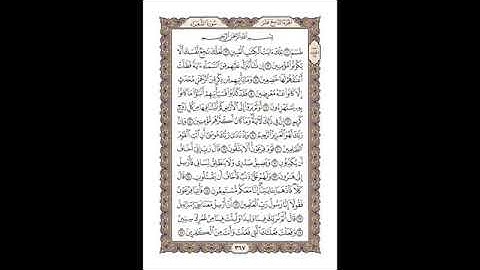 الجزء التاسع عشر
سورة الشعراء
بسم الله الرحمن الرحيم
طسٓمٓ ١ تِلْكَ ءَايَٰتُ ٱلْكِتَٰبِ ٱلْمُبِينِ ٢ لَعَلَّكَ بَٰخِعٌ نَّفْسَكَ أَلَّا
يَكُونُوا۟ مُؤْمِنِينَ ٣ إِن نَّشَأْ نُنَزِّلْ عَلَيْهِم مِّنَ ٱلسَّمَآءِ ءَايَةً فَظَلَّتْ
أَعْنَٰقُهُمْ لَهَا خَٰضِعِينَ ٤ وَمَا يَأْتِيهِم مِّن ذِكْرٍ مِّنَ ٱلرَّحْمَٰنِ مُحْدَثٍ
إِلَّا كَانُوا۟ عَنْهُ مُعْرِضِينَ ٥ فَقَدْ كَذَّبُوا۟ فَسَيَأْتِيهِمْ أَنۢبَٰٓؤُا۟ مَا كَانُوا۟
بِهِۦ يَسْتَهْزِءُونَ ٦ أَوَلَمْ يَرَوْا۟ إِلَى ٱلْأَرْضِ كَمْ أَنۢبَتْنَا فِيهَا مِن كُلِّ زَوْجٍ
كَرِيمٍ ٧ إِنَّ فِى ذَٰلِكَ لَءَايَةً وَمَا كَانَ أَكْثَرُهُم مُّؤْمِنِينَ ٨ وَإِنَّ
رَبَّكَ لَهُوَ ٱلْعَزِيزُ ٱلرَّحِيمُ ٩ وَإِذْ نَادَىٰ رَبُّكَ مُوسَىٰٓ أَنِ ٱئْتِ ٱلْقَوْمَ
ٱلظَّٰلِمِينَ ١٠ قَوْمَ فِرْعَوْنَ أَلَا يَتَّقُونَ ١١ قَالَ رَبِّ إِنِّىٓ أَخَافُ
أَن يُكَذِّبُونِ ١٢ وَيَضِيقُ صَدْرِى وَلَا يَنطَلِقُ لِسَانِى فَأَرْسِلْ
إِلَىٰ هَٰرُونَ ١٣ وَلَهُمْ عَلَىَّ ذَنۢبٌ فَأَخَافُ أَن يَقْتُلُونِ ١٤ قَالَ
كَلَّا فَٱذْهَبَا بِـَٔايَٰتِنَآ إِنَّا مَعَكُم مُّسْتَمِعُونَ ١٥ فَأْتِيَا فِرْعَوْنَ
فَقُولَآ إِنَّا رَسُولُ رَبِّ ٱلْعَٰلَمِينَ ١٦ أَنْ أَرْسِلْ مَعَنَا بَنِىٓ إِسْرَٰٓءِيلَ
١٧ قَالَ أَلَمْ نُرَبِّكَ فِينَا وَلِيدًا وَلَبِثْتَ فِينَا مِنْ عُمُرِكَ سِنِينَ
١٨ وَفَعَلْتَ فَعْلَتَكَ ٱلَّتِى فَعَلْتَ وَأَنتَ مِنَ ٱلْكَٰفِرِينَ ١٩
٣٦٧